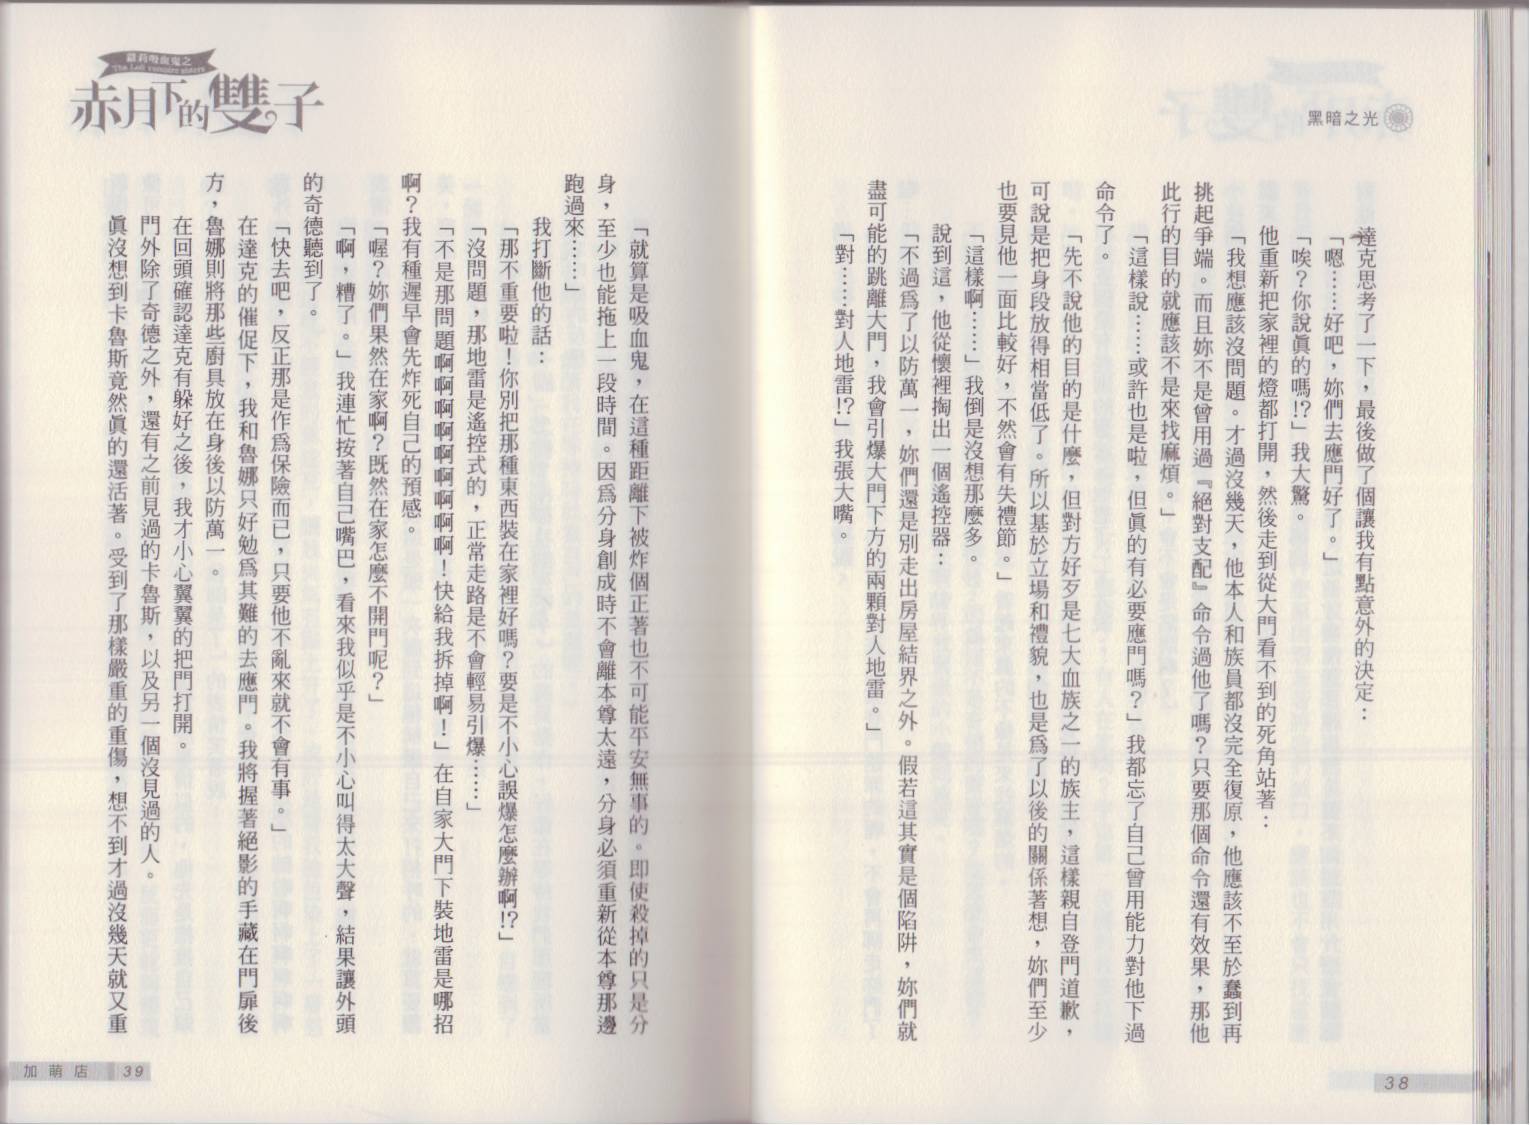 黑暗之光
達克思考了一下，最後做了個讓我有點意外的決定：
「嗯……好吧，妳們去應門好了。」
「唉？你說真的嗎!?」我大驚。
他重新把家裡的燈都打開，然後走到從大門看不到的死角站著：
「我想應該沒問題。才過沒幾天，他本人和族員都沒完全復原，他應該不至於蠢到再
挑起爭端。而且妳不是曾用過『絕對支配』命令過他了嗎？只要那個命令還有效果，那他
此行的目的就應該不是來找麻煩。」
「這樣說……或許也是啦，但真的有必要應門嗎？」我都忘了自己曾用能力對他下過
命令了。
「先不說他的目的是什麼，但對方好歹是七大血族之一的族主，這樣親自登門道歉，
可說是把身段放得相當低了。所以基於立場和禮貌，也是為了以後的關係著想，妳們至少
也要見他一面比較好，不然會有失禮節。」
「這樣啊……」我倒是沒想那麼多。
說到這，他從懷裡掏出一個遙控器：
「不過為了以防萬一，妳們還是別走出房屋結界之外。假若這其實是個陷阱，妳們就
盡可能的跳離大門，我會引爆大門下方的兩顆對人地雷。」
「對……對人地雷!?」我張大嘴。
38
蘿莉吸血鬼之
The Loli vampire sisters
赤月下的雙子
「就算是吸血鬼，在這種距離下被炸個正著也不可能平安無事的。即使殺掉的只是分
身，至少也能拖上一段時間。因為分身創成時不會離本尊太遠，分身必須重新從本尊那邊
跑過來……」
我打斷他的話：
「那不重要啦！你別把那種東西裝在家裡好嗎？要是不小心誤爆怎麼辦啊!?」
「沒問題，那地雷是遙控式的，正常走路是不會輕易引爆……」
「不是那問題啊啊啊啊啊啊啊啊啊！快給我拆掉啊！」在自家大門下裝地雷是哪招
啊？我有種遲早會先炸死自己的預感。
「喔？妳們果然在家啊？既然在家怎麼不開門呢？」
「啊，糟了。」我連忙按著自己嘴巴，看來我似乎是不小心叫得太大聲，結果讓外頭
的奇德聽到了。
「快去吧，反正那是作為保險而已，只要他不亂來就不會有事。」
在達克的催促下，我和魯娜只好勉為其難的去應門。我將握著絕影的手藏在門扉後
方，魯娜則將那些廚具放在身後以防萬一。
在回頭確認達克有躲好之後，我才小心翼翼的把門打開。
門外除了奇德之外，還有之前見過的卡魯斯，以及另一個沒見過的人。
真沒想到卡魯斯竟然真的還活著。受到了那樣嚴重的重傷，想不到才過沒幾天就又重
加萌店
39